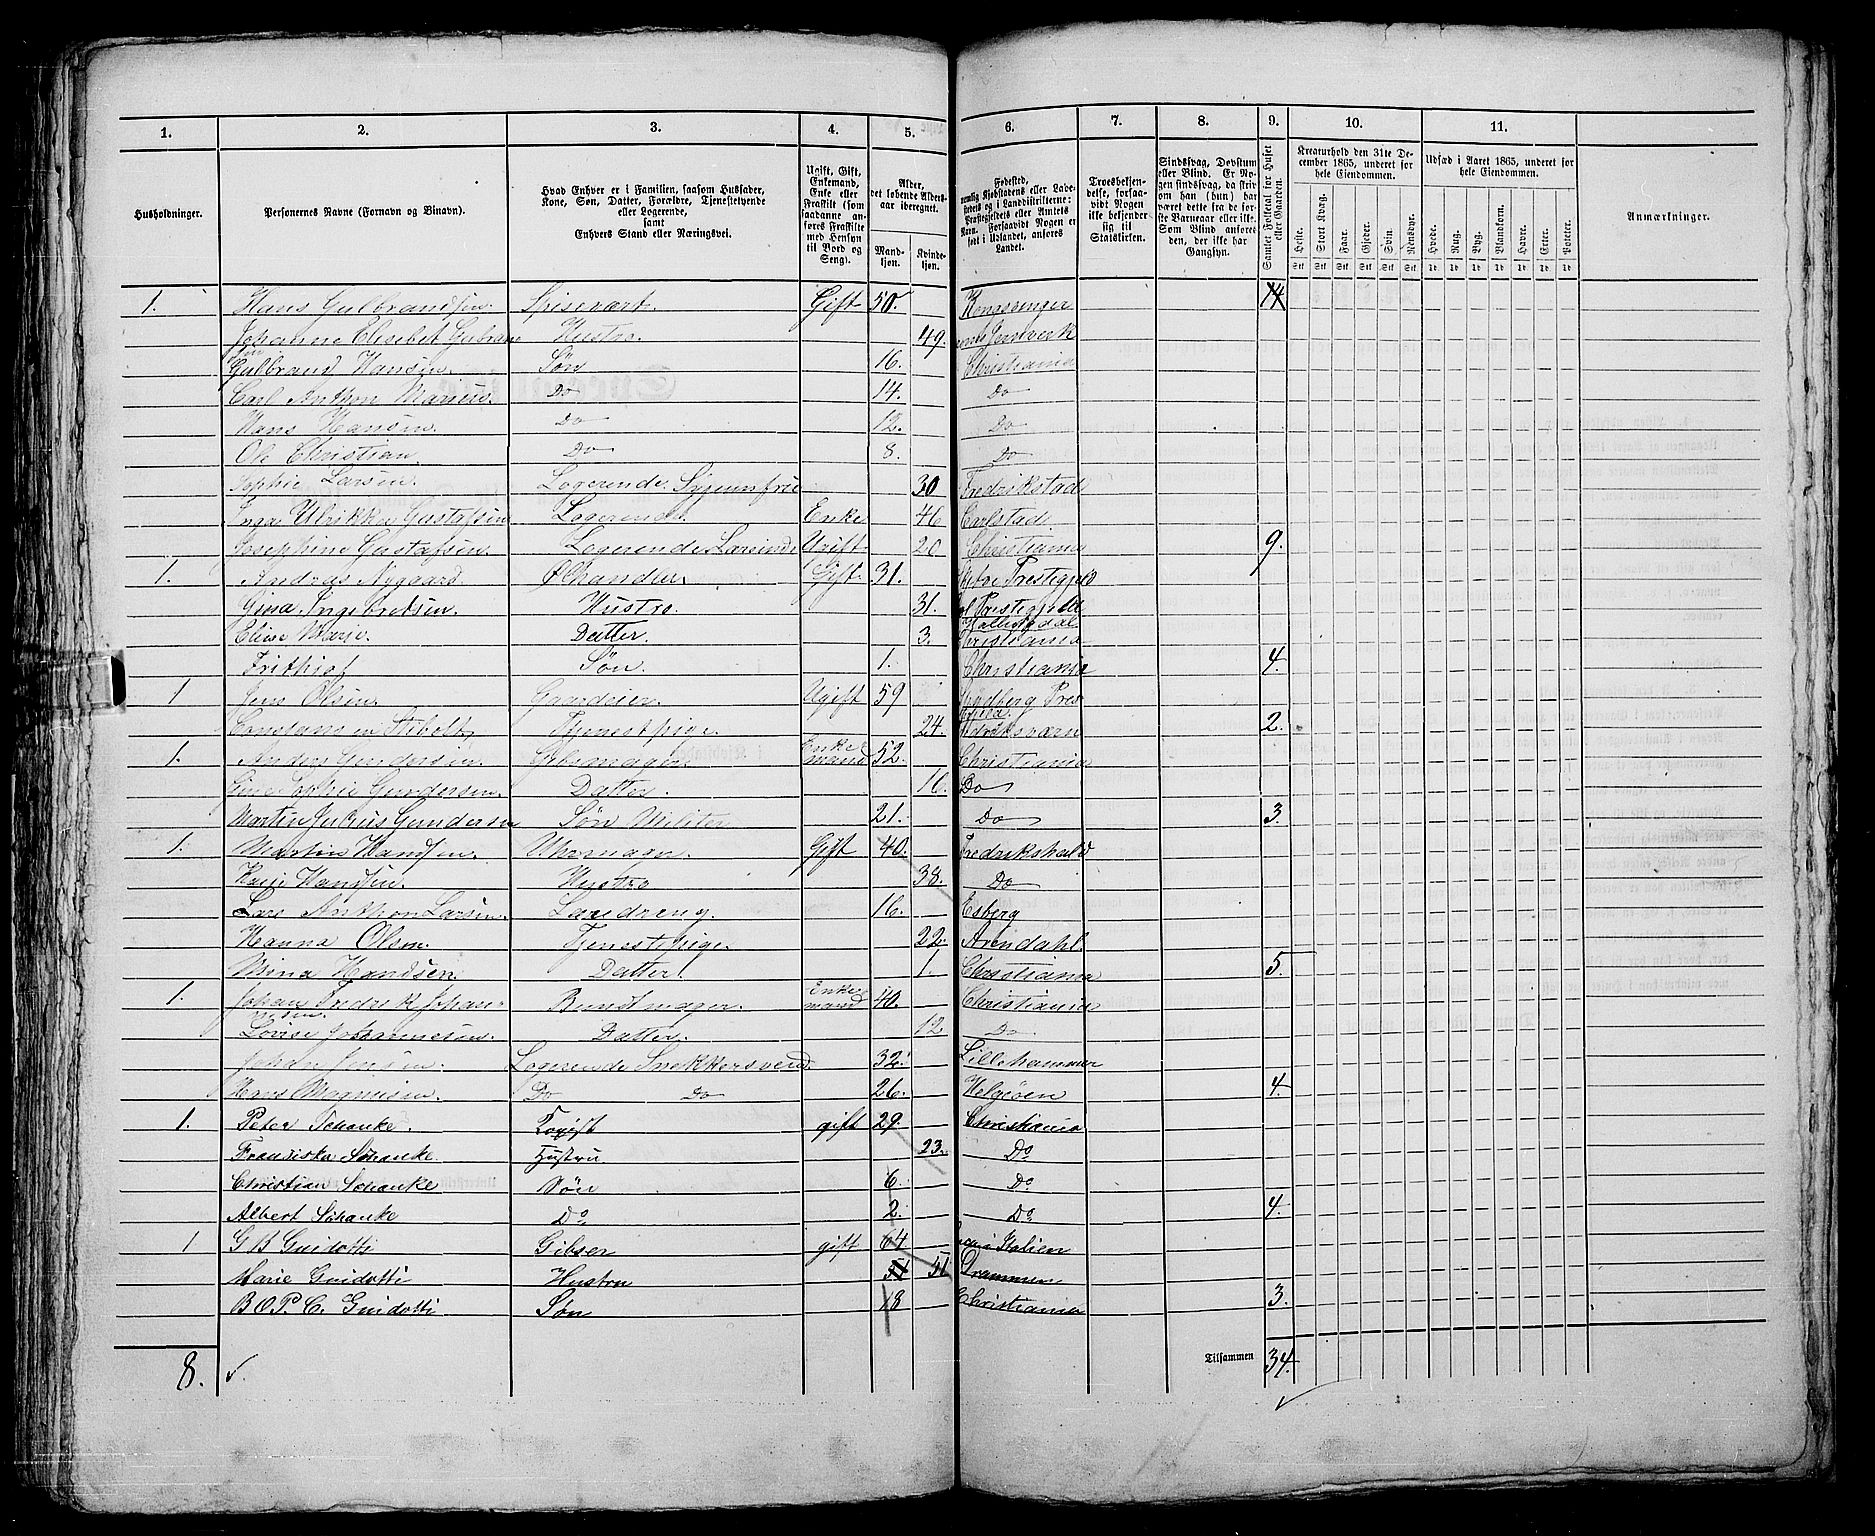 1. 2. 3. 4. 5. 6. 7. 8. 9. 10. 11.
Husholdninger. Personernes Navne (Fornavn og Binavn). Hvad Enhver er i Familien, saasom Husfader, Kone, Søn, Datter, Forældre, Tjenestetyende eller Logerende, samt Enhvers Stand eller Næringsvei. Ugift, Gift, Enkemand, Enke eller Fraskilt (som saadanne anføres Fraskilte med Hensyn til Bord og Seng). Alder, det løbende Aldersaar iberegnet. Mandkjøn. Kvindekjøn.
Fødested, nemlig Kjøbstadens eller Ladestedets og i Landdistrikterne: Præstegjeldets eller Amtets Navn. Forsaavidt Nogen er født i Udlandet, anføres Landet. Troesbekjendelse, forsaavidt Nogen ikke bekjender sig til Statskirken. Sindssvag, Døvstum eller Blind. Er Nogen sindssvag, da skrives om han (hun) har været dette fra de første Barneaar eller ikke. Som Blind anføres den, der ikke har Gangsyn. Samlet Folketal for Huset eller Gaarden.
Kreaturhold den 31te December 1865, underet for hele Eiendommen. Udsæd i Aaret 1865, underet for hele Eiendommen. Anmærkninger.
Heste. Stort Kvæg. Faar. Gjeder. Svin. Rensdyr. Hvede. Rug. Byg. Blandkorn. Havre. Erter. Poteter.
1. Hans Gulbrandsen. Spisevært. Gift 50. Kongsvinger 14
Johanne Elisebet Gubrandsen Hustro. 49. Jernverk
Gulbrand Hansen. Søn 16. Christiania
Carl Anthon Marius. Do 14. Do
Hans Hansen. Do 12. Do
Ole Christian. Do 8. Do
Sophie Larsen. Logerende. Syjomfru 30 Fredrikstad
Inga Ulrikka Gustafsen Logerende. Enke 46 Carlstad
Josephine Gustafsen. Logerende Ugift 20 Christiania 9.
1. Andras Nygaard. Ølhandler. Gift. 31. Prestegjeld
Gina Ingebretsen. Hustro. 31. Prestegjeld Hallingdal
Elise Marie. Datter. 3. Christiania
Frithiof Søn. 1. Christiania 4.
1 Jens Olsen. Gaardeier. Ugift 59
Constance Stibolt Tjenestpige. 24. 2.
1. Anders Gundersen. Enkemand 52. Christiania
Gina Sophie Gundersen. Datter. 16. Do
Martin Julius Gundersen Søn Militer 21. Do 3.
1. Martin Handsen. Uhrmager. Gift 40. Fredrikshald
Karie Handsen. Hustro 38. Do
Lars Anthon Larsen. Læredreng. 16. Esberg
Hanna Olsen. Tjenestpige. 22. Arendahl.
Mina Handsen Datter. 1. Christiania 5.
1. Johan Fredrik Johannesen Bundtmager. Enkemand 40. Christiania
Lovise Johannesen. Datter. 12 Do
Johan Jensen. Logerende Snekkersvend. 32. Lillehammer
Hans Magnusen. Do Do 26. Helgøen 4.
1. Peter Schanke. gift 29. Christiania
Franziska Schanke. Hustru 23. Do
Christian Schanke Søn 6. Do
Albert Schanke Do 2. Do 4.
1 G B Guidotti Gibser gift 64 Italien
Marie Guidotti Hustru 51 51 Drammen
B O P. C. Guidotti Søn 18 Christiania 3.
8. Tilsammen 34.